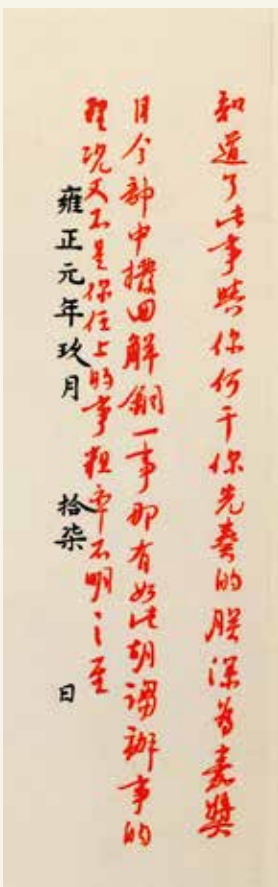 知道了此事與你何干你先奏的朕深為嘉獎
目今部中撥回解銅一事那有如此胡謅辦事的
理況又不是你任上的事粗率不明之至
雍正元年玖月 拾柒 日